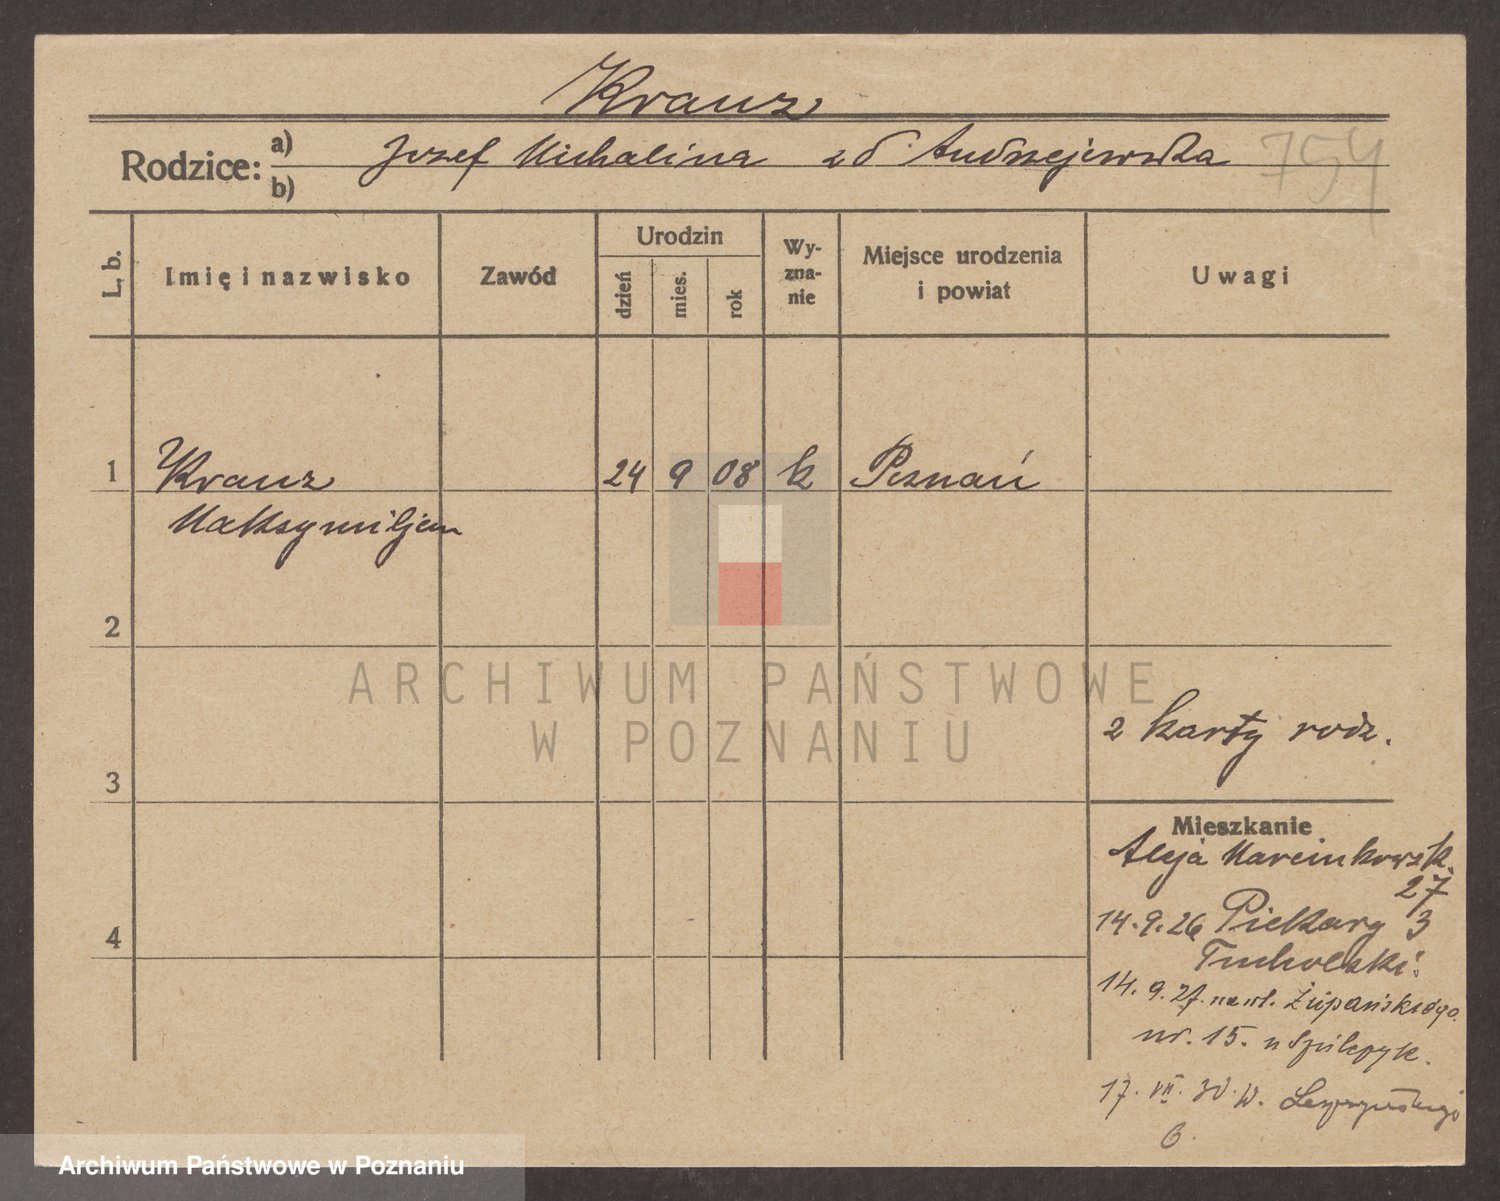 Kranz
Rodzice: a) Jozef Michalina zd Andrzejewska 754
b)
L. b.
Imię i nazwisko
Zawód
Urodzin
dzień
mies.
rok
Wy-
zna-
nie
Miejsce urodzenia
i powiat
Uwagi
1 Kranz 24 9 08 k Poznań
Maksymiljan
2
ARCHIWUM PAŃSTWOWE
W POZNANIU
2 karty rodz.
3
Mieszkanie
Aleja Marcinkowsk.
27
14.9.26 Piekary 3
4
Tucholski.
14.9.27. Żupańskiego.
nr. 15. u
17. VII. 30. W.
6.
Archiwum Państwowe w Poznaniu